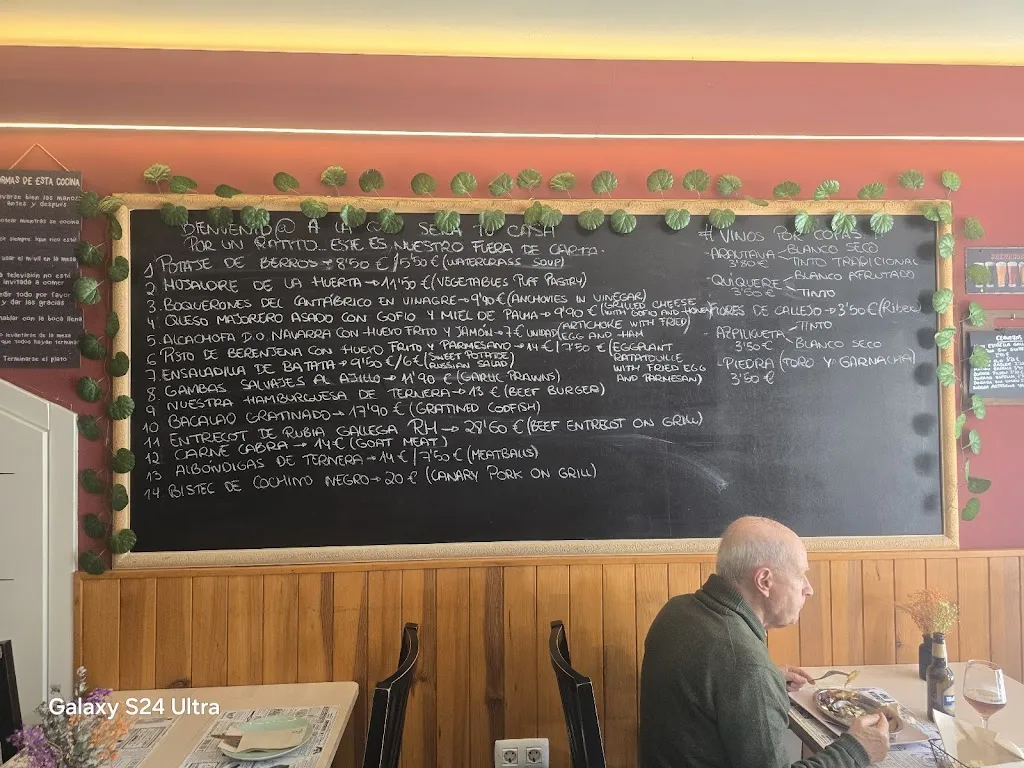 BIENVENID@ A LA QUE SERÁ TU CASA
POR UN RATITO... ESTE ES NUESTRO FUERA DE CARTA.
1. POTAJE DE BERROS → 8'50 € / 5'50 € (WATERCRASS SOUP)
2. HOJALDRE DE LA HUERTA → 11'50 € (VEGETABLES PUFF PASTRY)
3. BOQUERONES DEL CANTÁBRICO EN VINAGRE → 9'90 € (ANCHOVIES IN VINEGAR)
4. QUESO MAJORERO ASADO CON GOFIO Y MIEL DE PALMA → 9'90 € (GRILLED CHEESE WITH GOFIO AND HONEY)
5. ALCACHOFA D.O. NAVARRA CON HUEVO FRITO Y JAMÓN → 7 € UNIDAD (ARTICHOKE WITH FRIED EGG AND HAM)
6. PISTO DE BERENJENA CON HUEVO FRITO Y PARMESANO → 14 € / 7'50 € (EGGPLANT RATATOUILLE WITH FRIED EGG AND PARMESAN)
7. ENSALADILLA DE BATATA → 9'50 € / 6 € (SWEET POTATOE RUSSIAN SALAD)
8 GAMBAS SALVAJES AL AJILLO → 11'90 € (GARLIC PRAWNS)
9 NUESTRA HAMBURGUESA DE TERNERA → 13 € (BEEF BURGER)
10 BACALAO GRATINADO → 17'90 € (GRATINED CODFISH)
11 ENTRECOT DE RUBIA GALLEGA RH → 28'60 € (BEEF ENTRECOT ON GRILL)
12 CARNE CABRA → 14 € (GOAT MEAT)
13 ALBÓNDIGAS DE TERNERA → 14 € / 7'50 € (MEATBALLS)
14. BISTEC DE COCHINO NEGRO → 20 € (CANARY PORK ON GRILL)
# VINOS POR COPA #
- ARAUTAVA
3'80 €
BLANCO SECO
TINTO TRADICIONAL
QUIQUERE
3'50 €
BLANCO AFRUTADO
TINTO
FLORES DE CALLEJO → 3'50 € (Ribera)
APPILIQUETA
3'50 €
TINTO
BLANCO SECO
- PIEDRA (TORO Y GARNACHA)
3'50 €
NORMAS DE ESTA COCINA
Lavarse bien las manos
antes y después
Terminarse el plato
Galaxy S24 Ultra